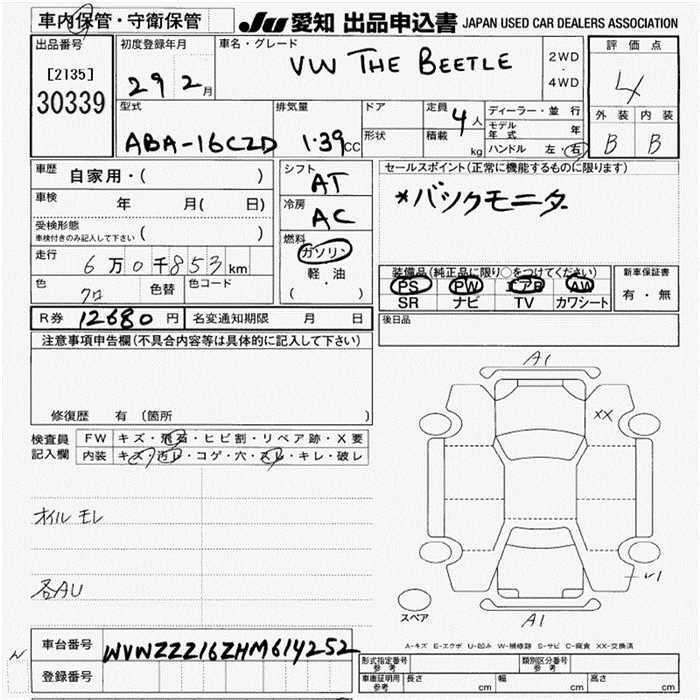 車内保管・守衛保管
JU 愛知 出品申込書 JAPAN USED CAR DEALERS ASSOCIATION
出品番号
[2135]
30339
初度登録年月
29 2月
車名・グレード
VW THE BEETLE
2WD
・
4WD
評価点
4
外装 内装
B B
型式
ABA-16CZD
排気量
1.39CC
ドア
形状
定員
4人
積載
kg
ディーラー・並行
モデル年式 年
ハンドル 左・右
車歴
自家用・( )
車検
年 月( 日)
受検形態
車検付きのみ記入して下さい ( )
走行
6万0千853km
色
クロ
色替
色コード
シフト
AT
冷房
AC
燃料
ガソリン
軽・油
( )
セールスポイント(正常に機能するものに限ります)
*バックモニター
装備品(純正品に限り○をつけてください)
PS PW エアB AW
SR ナビ TV カワシート
新車保証書
有・無
後日品
R券 12680円
名変通知期限 月 日
注意事項申告欄(不具合内容等は具体的に記入して下さい)
修復歴 有 〔箇所 〕
検査員
記入欄
FW キズ・飛石・ヒビ割・リペア跡・X要
内装 キズ・汚レ・コゲ・穴・スレ・キレ・破レ
オイルモレ
各AU
A1
XX
A1
スペア
A-キズ E-エクボ U-凹み W-補修跡 S-サビ C-腐食 XX-交換済
車台番号
WVWZZZ16ZHM614252
登録番号
形式指定番号
参考
類別区分番号
参考
車庫証明用
参考
長さ cm
幅 cm
高さ cm